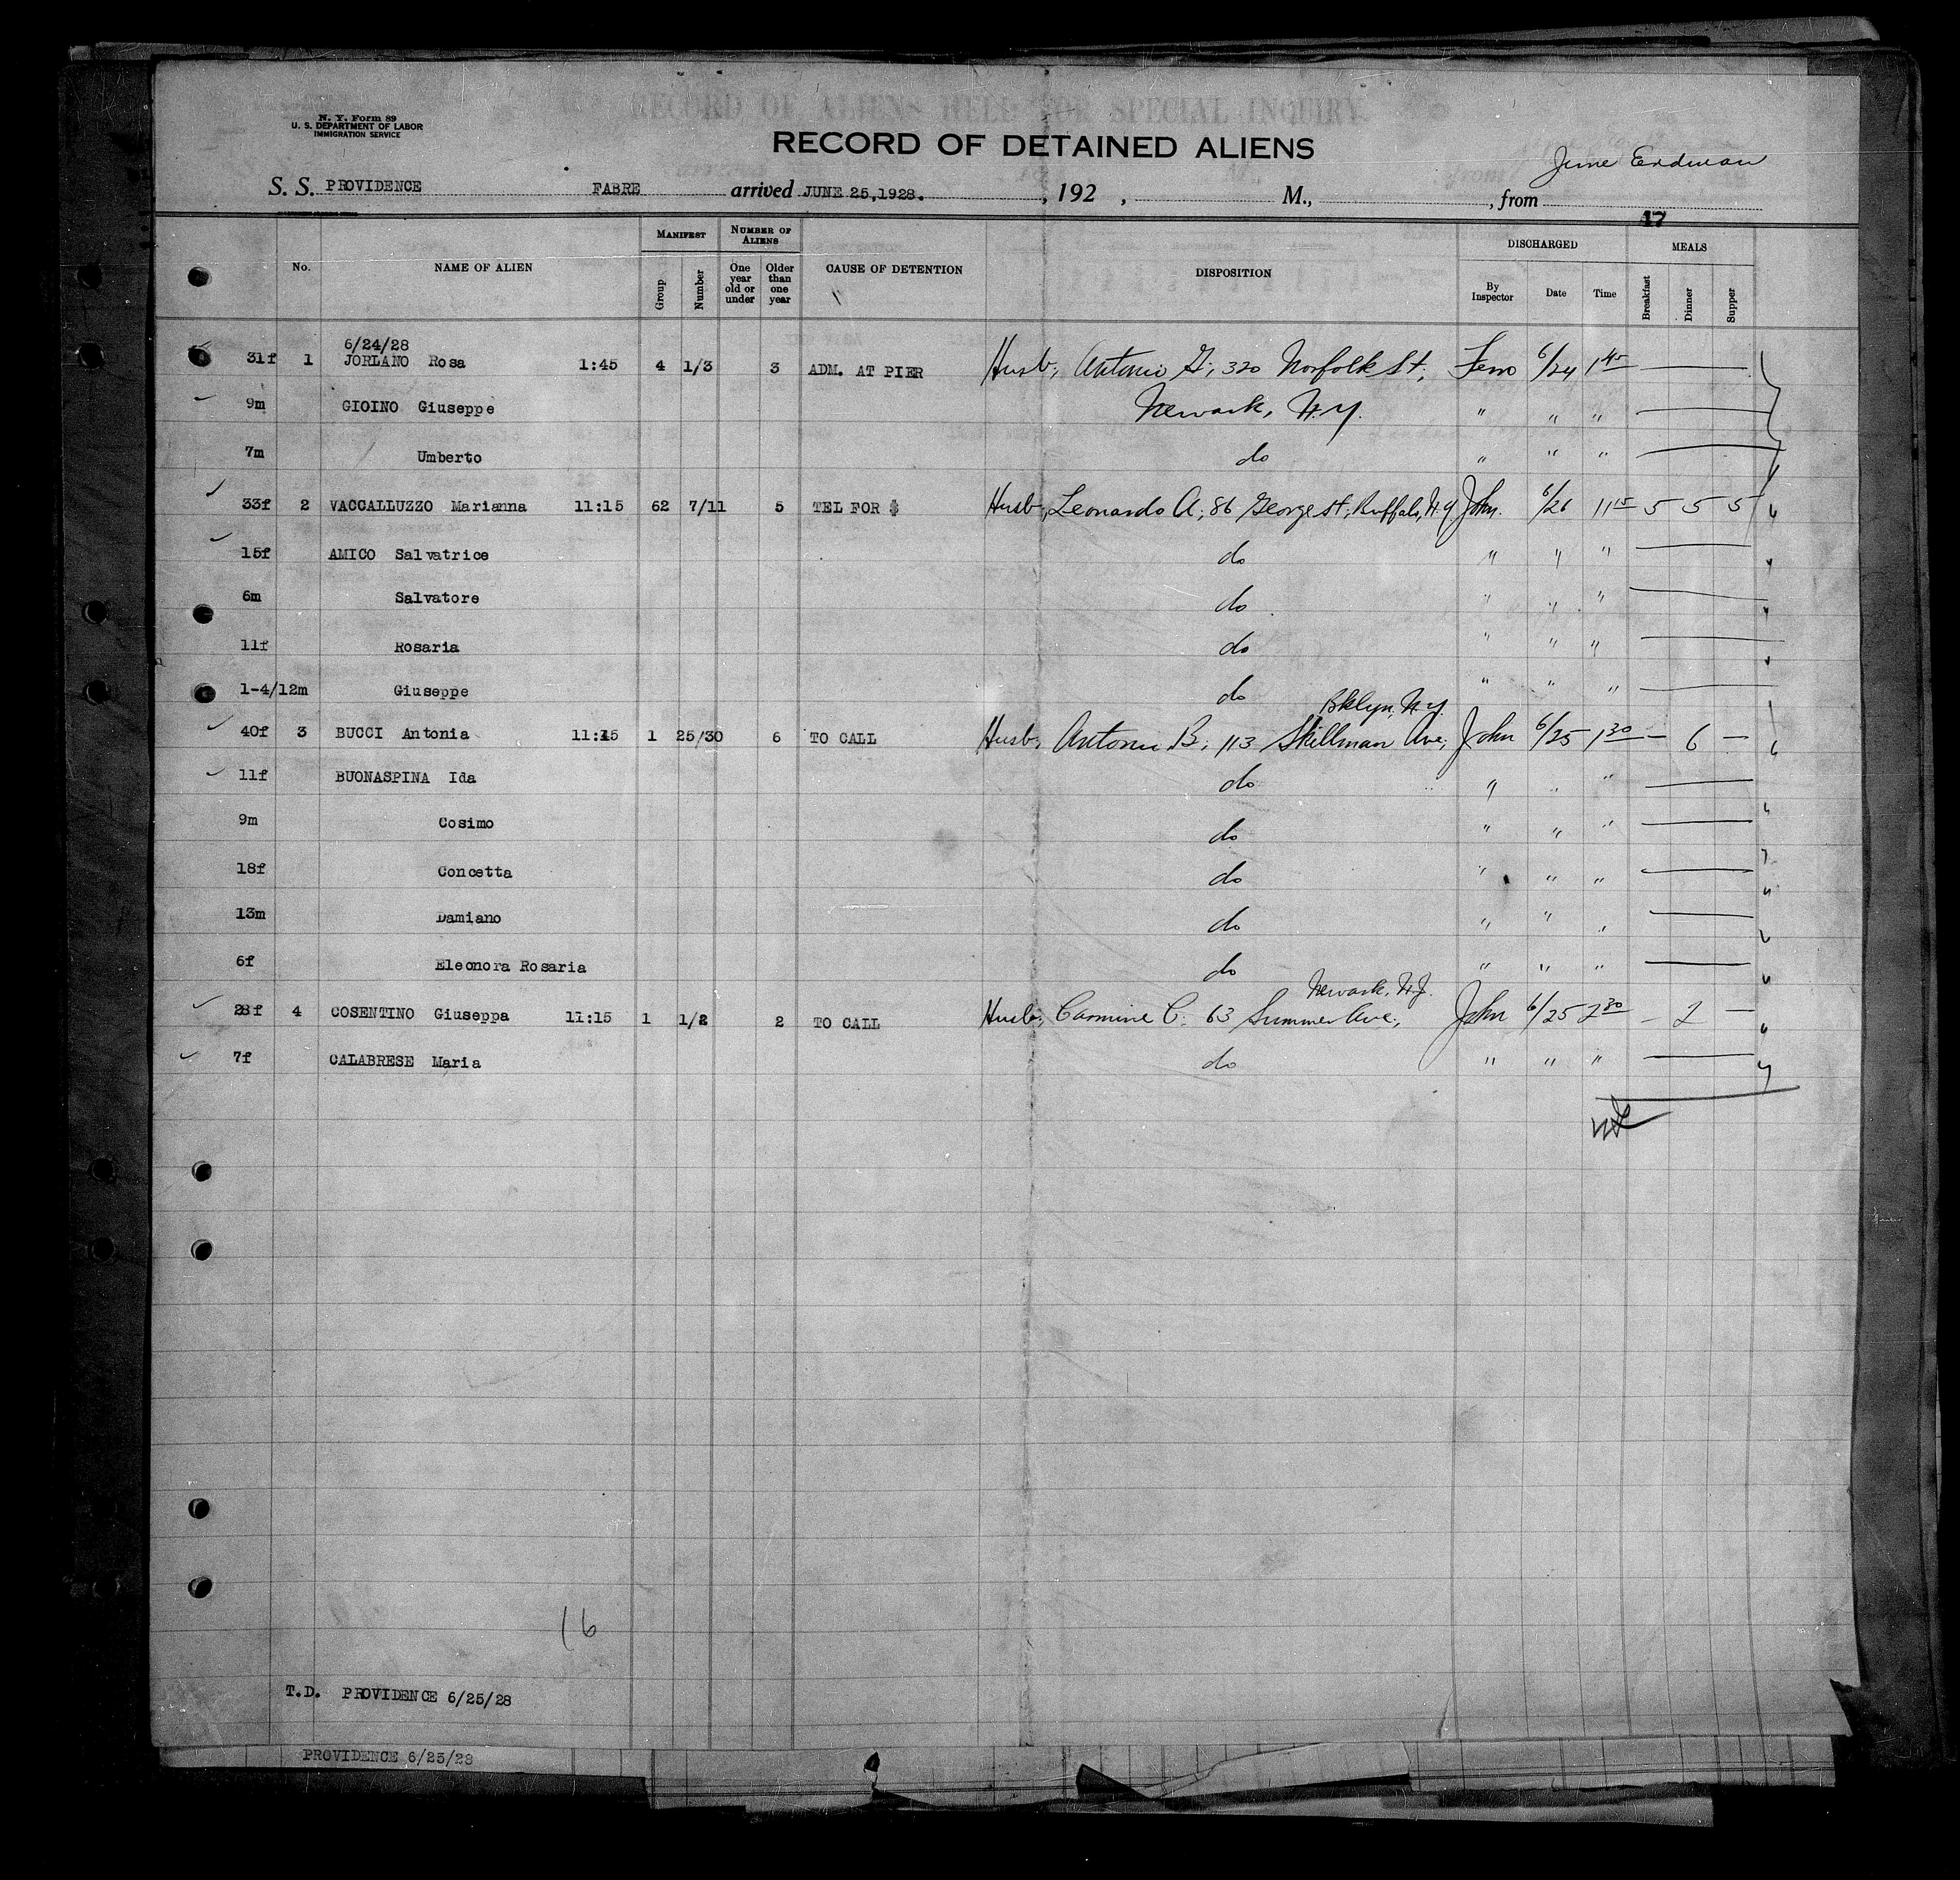 RECORD OF ALIENS HELD FOR SPECIAL INQUIRY
N. Y. Form 89
U. S. DEPARTMENT OF LABOR
IMMIGRATION SERVICE
RECORD OF DETAINED ALIENS
June Erdman
S. S. PROVIDENCE FABRE arrived JUNE 25,1928. , 192 , M., , from
17
No. NAME OF ALIEN MANIFEST Group Number NUMBER OF ALIENS One year old or under Older than one year CAUSE OF DETENTION DISPOSITION DISCHARGED By Inspector Date Time MEALS Breakfast Dinner Supper
6/24/28
31f 1 JORLANO Rosa 1:45 4 1/3 3 ADM. AT PIER Husb, Antonio G, 320 Norfolk St, 6/24 1 45
9m GIOINO Giuseppe Newark, N.Y. " " "
7m Umberto do " " "
33f 2 VACCALLUZZO Marianna 11:15 62 7/11 5 TEL FOR $ Husb, Leonardo A, 86 George St, Buffalo, N.Y John. 6/26 11 15 5 5 5
15f AMICO Salvatrice do " " "
6m Salvatore do " " "
11f Rosaria do " " "
1-4/12m Giuseppe do " " "
Bklyn, N.Y.
40f 3 BUCCI Antonia 11:15 1 25/30 6 TO CALL Husb, Antonio B, 113 Skillman Ave, John 6/25 1 30 — 6 —
11f BUONASPINA Ida do " " "
9m Cosimo do " " "
18f Concetta do " " "
13m Damiano do " " "
6f Eleonora Rosaria do " " "
Newark, N.J.
28f 4 COSENTINO Giuseppa 11:15 1 1/2 2 TO CALL Husb, Carmine C. 63 Summer Ave, John 6/25 2 30 — 2 —
7f CALABRESE Maria do " " "
16
T.D. PROVIDENCE 6/25/28
PROVIDENCE 6/25/28